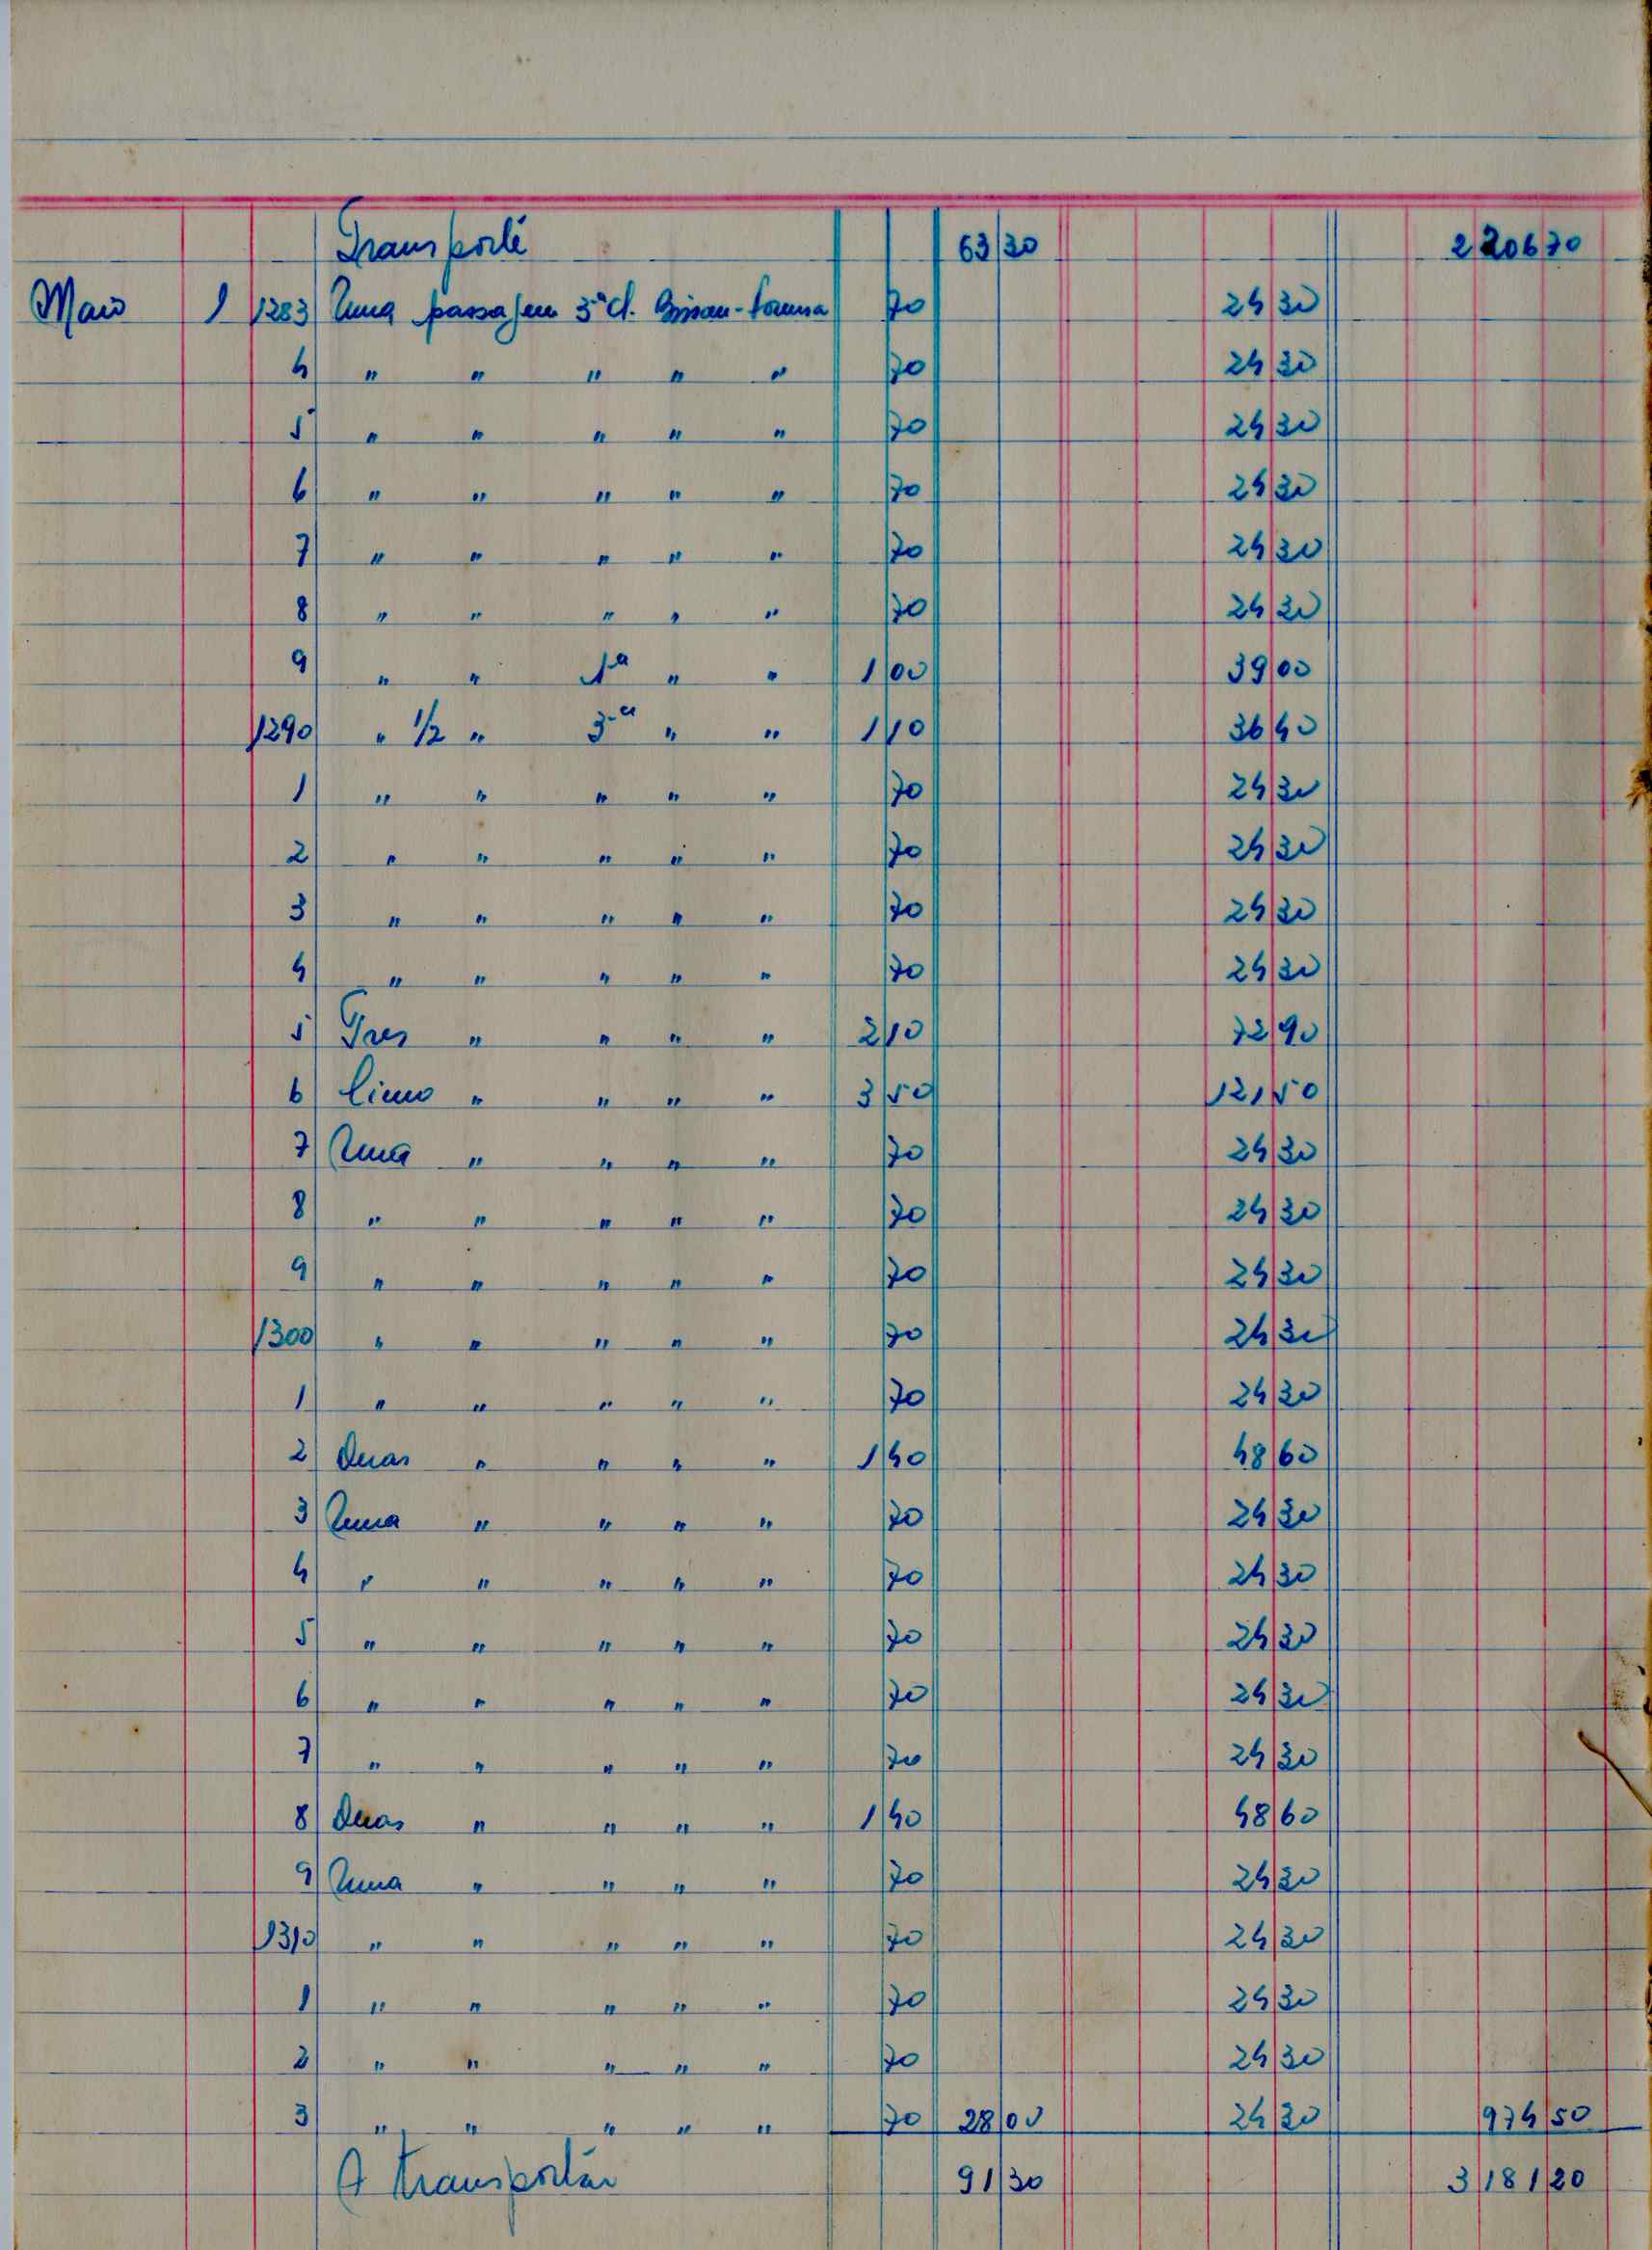 Transporte 63 30 2 206 70
Maio 1 1283 Uma passagem 3ª cl. Bissau- 70 24 30
4 " " " " " 70 24 30
5 " " " " " 70 24 30
6 " " " " " 70 24 30
7 " " " " " 70 24 30
8 " " " " " 70 24 30
9 " " 1ª " " 1 00 39 00
1290 " 1/2 " 3ª " " 1 10 36 40
1 " " " " " 70 24 30
2 " " " " " 70 24 30
3 " " " " " 70 24 30
4 " " " " " 70 24 30
5 Tres " " " " 2 10 72 90
6 Cinco " " " " 3 50 121 50
7 Uma " " " " 70 24 30
8 " " " " " 70 24 30
9 " " " " " 70 24 30
1300 " " " " " 70 24 30
1 " " " " " 70 24 30
2 Duas " " " " 1 40 48 60
3 Uma " " " " 70 24 30
4 " " " " " 70 24 30
5 " " " " " 70 24 30
6 " " " " " 70 24 30
7 " " " " " 70 24 30
8 Duas " " " " 1 40 48 60
9 Uma " " " " 70 24 30
1310 " " " " " 70 24 30
1 " " " " " 70 24 30
2 " " " " " 70 24 30
3 " " " " " 70 28 00 24 30 974 50
A transportar 91 30 3 181 20